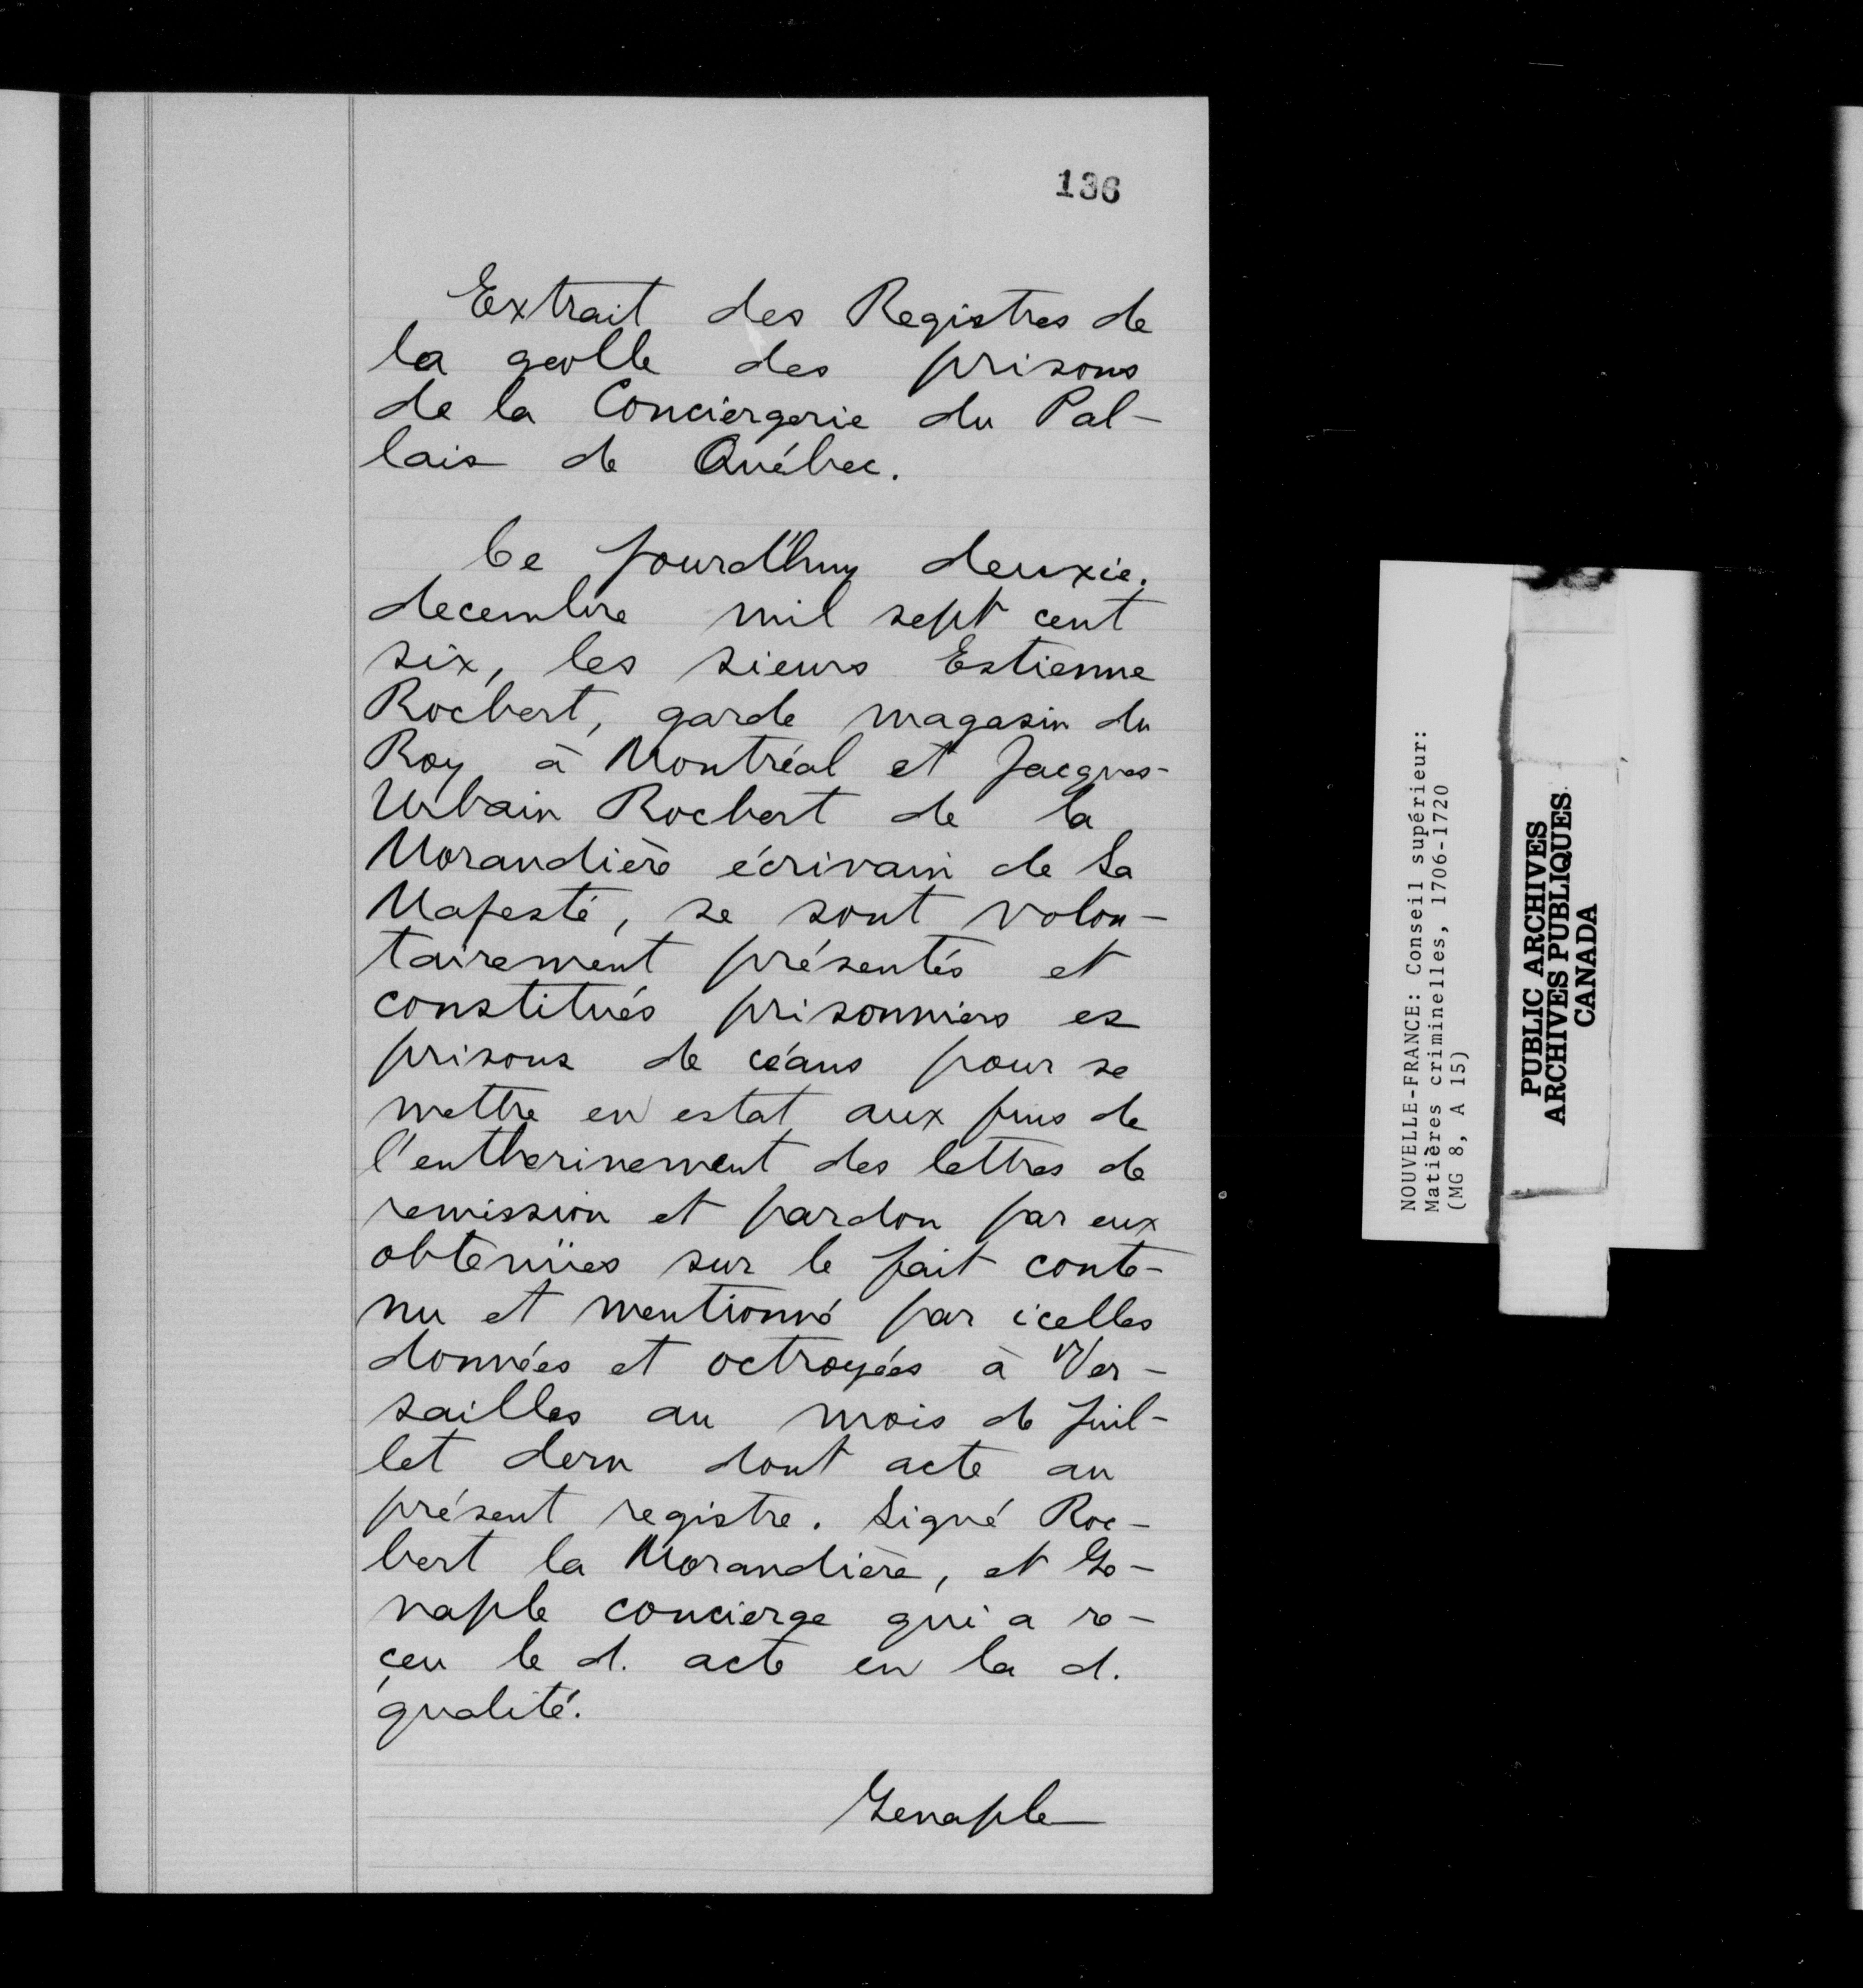 136
Extrait des Registres de
la geolle des prisons
de la Conciergerie du Pal-
lais de Québec.
Ce jourd'huy deuxie.
decembre mil sept cent
six, les sieurs Estienne
Rocbert, garde magasin du
Roy à Montréal et Jacques-
Urbain Rocbert de la
Morandière écrivain de Sa
Majesté, se sont volon-
tairement présentés et
constitués prisonniers es
prisons de céans pour se
mettre en estat aux fins de
l'entherinement des lettres de
remission et pardon par eux
obtenües sur le fait conte-
nu et mentionné par icelles
données et octroyées à Ver-
sailles au mois de juil-
let dern dont acte au
présent registre. Signé Roc-
bert la Morandière, et Ge-
naple concierge qui a re-
çeu le d. acte en la d.
qualité.
Genaple
NOUVELLE-FRANCE: Conseil supérieur:
Matières criminelles, 1706-1720
(MG 8, A 15)
PUBLIC ARCHIVES
ARCHIVES PUBLIQUES
CANADA